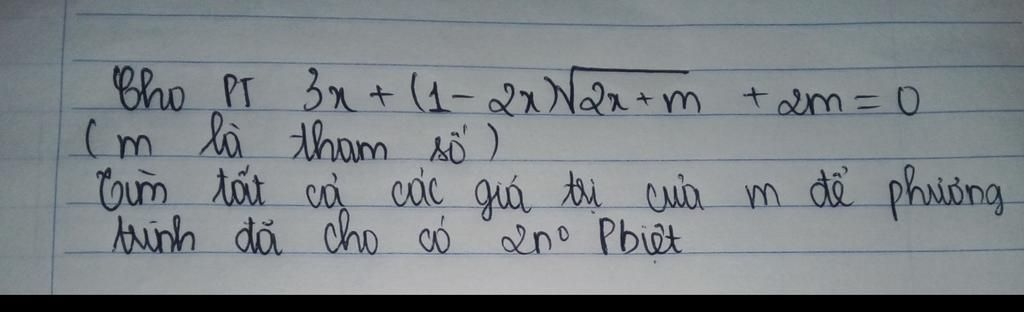 Cho PT 3x + (1 - 2x)√(2x + m) + 2m = 0
(m là tham số)
Tìm tất cả các giá trị của m để phương
trình đã cho có 2n° Pbiệt